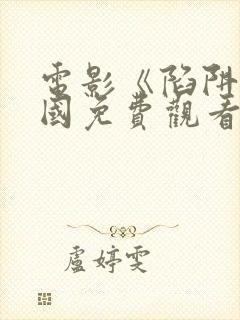 電影《陷阱
國免費觀看
盧婷雯